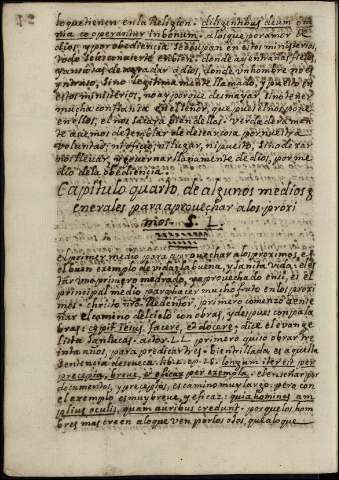 lo que tienen en la Religion: diligentibus deum om
nia cooperantur in bonum, a los que por amor de
dios, y por obediencia se ocupan en estos ministerios,
todo se les convierte en bien: donde ay entrañas, zelo,
y ansias de agradar a dios, donde un hombre no es
intruso, sino legitimamente llamado, y puesto en
estos ministerios, no ay porque desmayar, sino tener
mucha confiança en el señor, que pues el nos pone
en ellos, el nos sacara bien dellos. Verdaderamen
te avemos de temblar de desear cosa por nuestra
voluntad, ni oficio, ni lugar, ni puesto, sino dexar
nos llevar, y governar llanamente de dios, por me
dio de la obediencia.
Capitulo quarto, de algunos medios g
enerales para aprovechar a los proxi
mos. S. 1.
el primer medio para aprovechar a los proximos, es
el buen exemplo de vida, la buena, y santa vida. el es
tar uno primero medrado, y aprovechado en si, es el
principal medio para hacer mucho fruto en los proxi
mos. christo nro. Redentor, primero comenzó a ense
ñar el camino del cielo con obras, y despues con pala
bras: cępit Iesus, facere, et docere, dice el evange
lista san lucas. actor. 1. primero quiso obrar tre
inta años, para predicar tres. bien trillada es aquella
sentencia de seneca. lib. 1. ep. 6. longum iter est per
precepta, breve, et efficax per exempla. el enseñar por
documentos, y preceptos, es camino muy largo. pero con
el exemplo es muy breve, y eficaz: quia homines am
plius oculis, quam auribus credunt. porque los hom
bres mas creen a lo que ven por los ojos, que a lo que